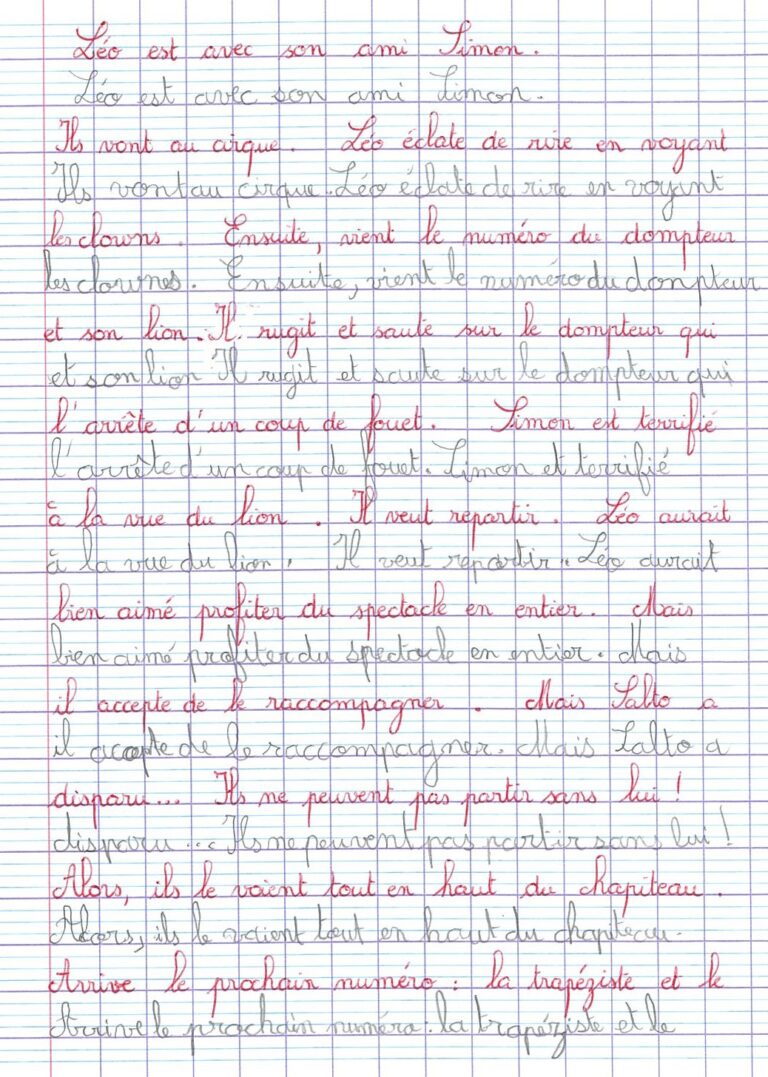 Léo est avec son ami Simon.
Léo est avec son ami Simon.
Ils vont au cirque. Léo éclate de rire en voyant
Ils vont au cirque. Léo éclate de rire en voyant
les clowns. Ensuite, vient le numéro du dompteur
les clownes. Ensuite, vient le numéro du donpteur
et son lion. Il rugit et saute sur le dompteur qui
et son lion Il rugit et saute sur le dompteur qui
l'arrête d'un coup de fouet. Simon est terrifié
l'arrête d'un coup de fouet. Simon et terrifié
à la vue du lion. Il veut repartir. Léo aurait
à la vue du lion. Il veut repartir. Léo aurait
bien aimé profiter du spectacle en entier. Mais
bien aimé profiter du spectacle en entier. Mais
il accepte de le raccompagner. Mais Salto a
il accepte de le raccompagner. Mais Salto a
disparu... Ils ne peuvent pas partir sans lui !
disparu... Ils ne peuvent pas partir sans lui !
Alors, ils le voient tout en haut du chapiteau.
Alors, ils le voient tout en haut du chapiteau.
Arrive le prochain numéro : la trapéziste et le
Arrive le prochain numéro : la trapéziste et le